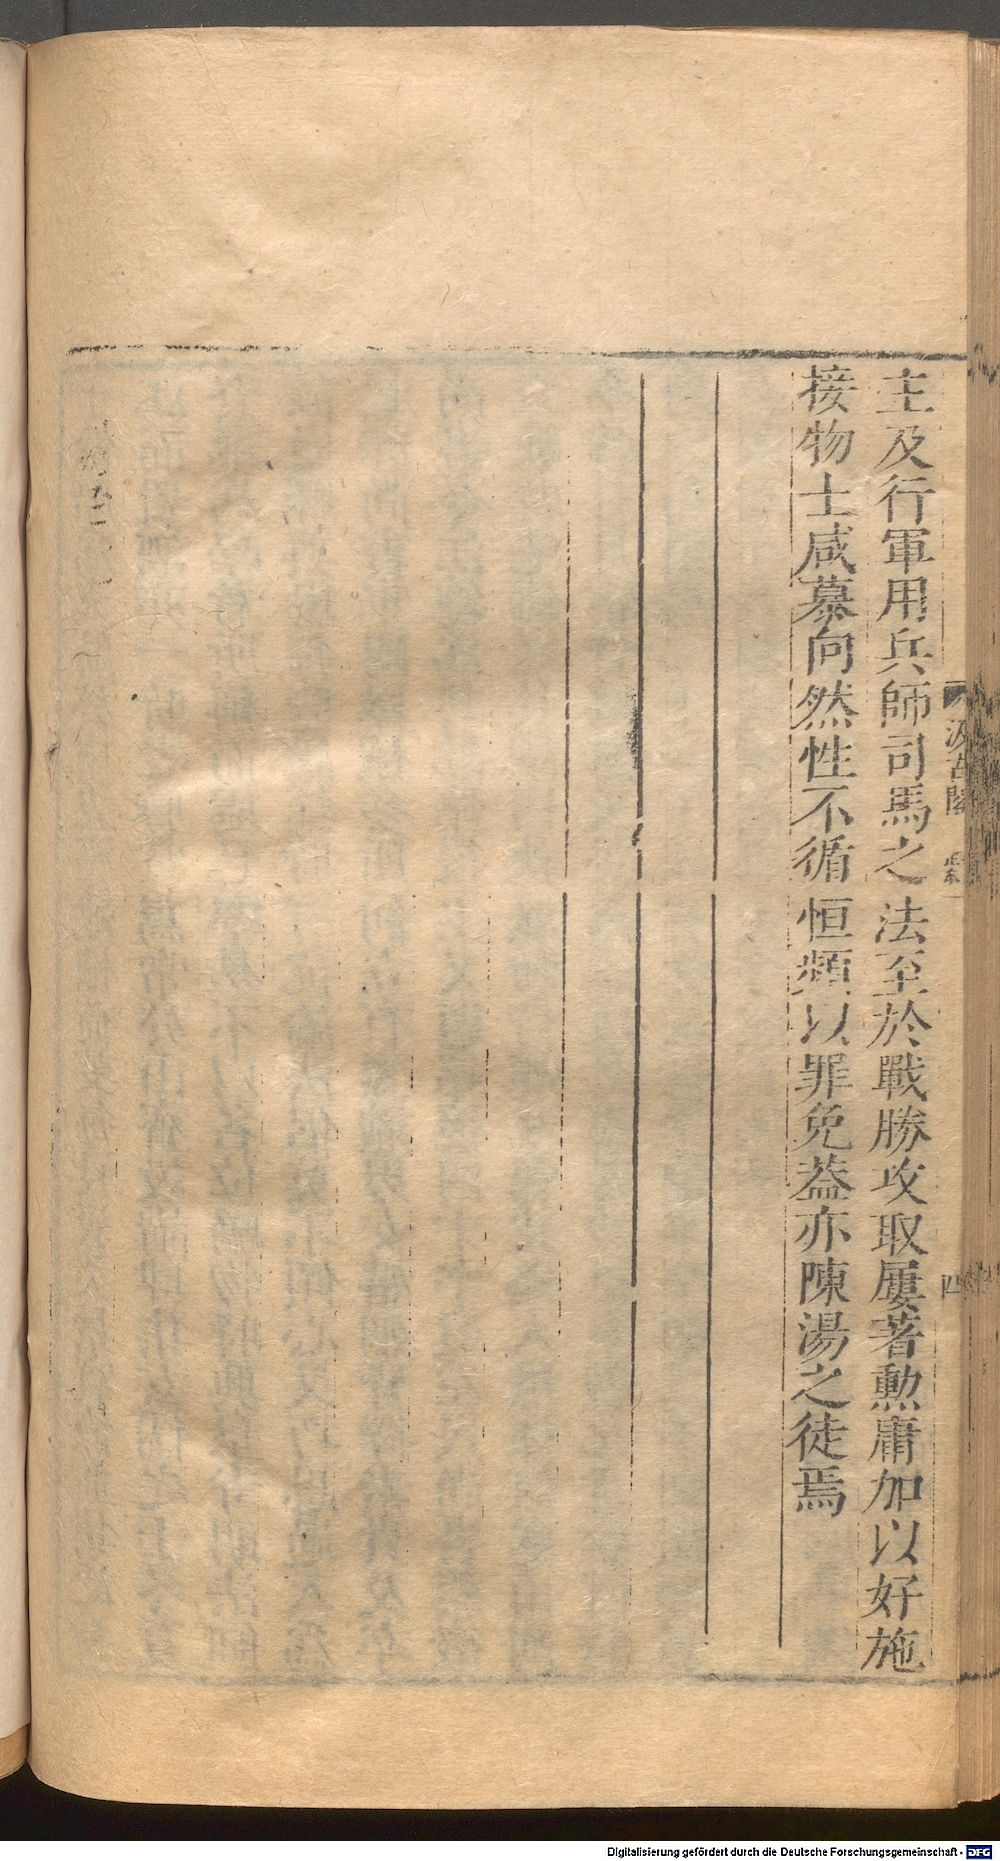 主及行軍用兵師司馬之法至於戰勝攻取屢著勲庸加以好施
接物士咸慕向然性不循恒頻以罪免葢亦陳湯之徒焉
汲古閣
四
Digitalisierung gefördert durch die Deutsche Forschungsgemeinschaft - DFG